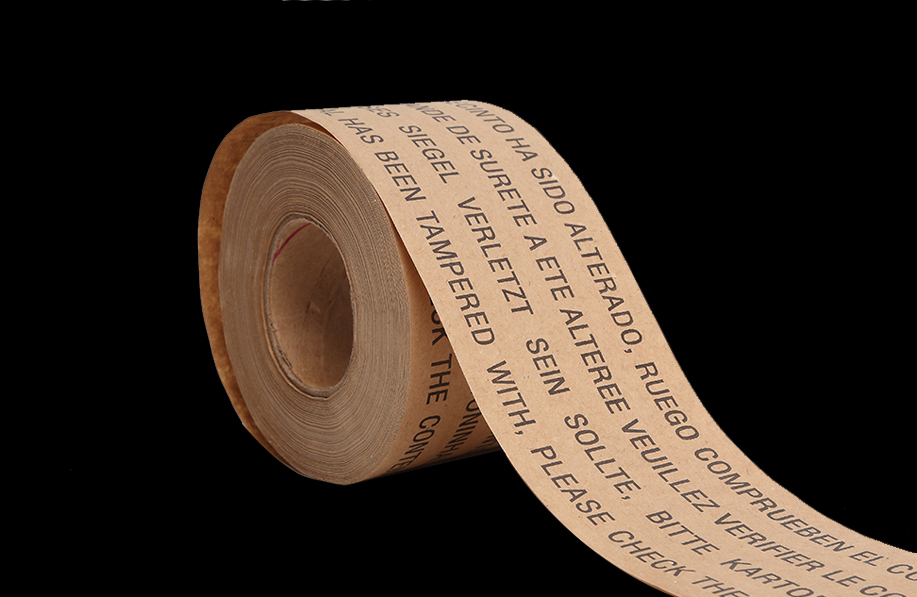 CINTO HA SIDO ALTERADO, RUEGO COMPRUEBEN EL CO
NDE DE SURETE A ETE ALTEREE VEUILLEZ VERIFIER LE CO
ES SIEGEL VERLETZT SEIN SOLLTE, BITTE KARTO
AL HAS BEEN TAMPERED WITH, PLEASE CHECK THE
CK THE CONTE